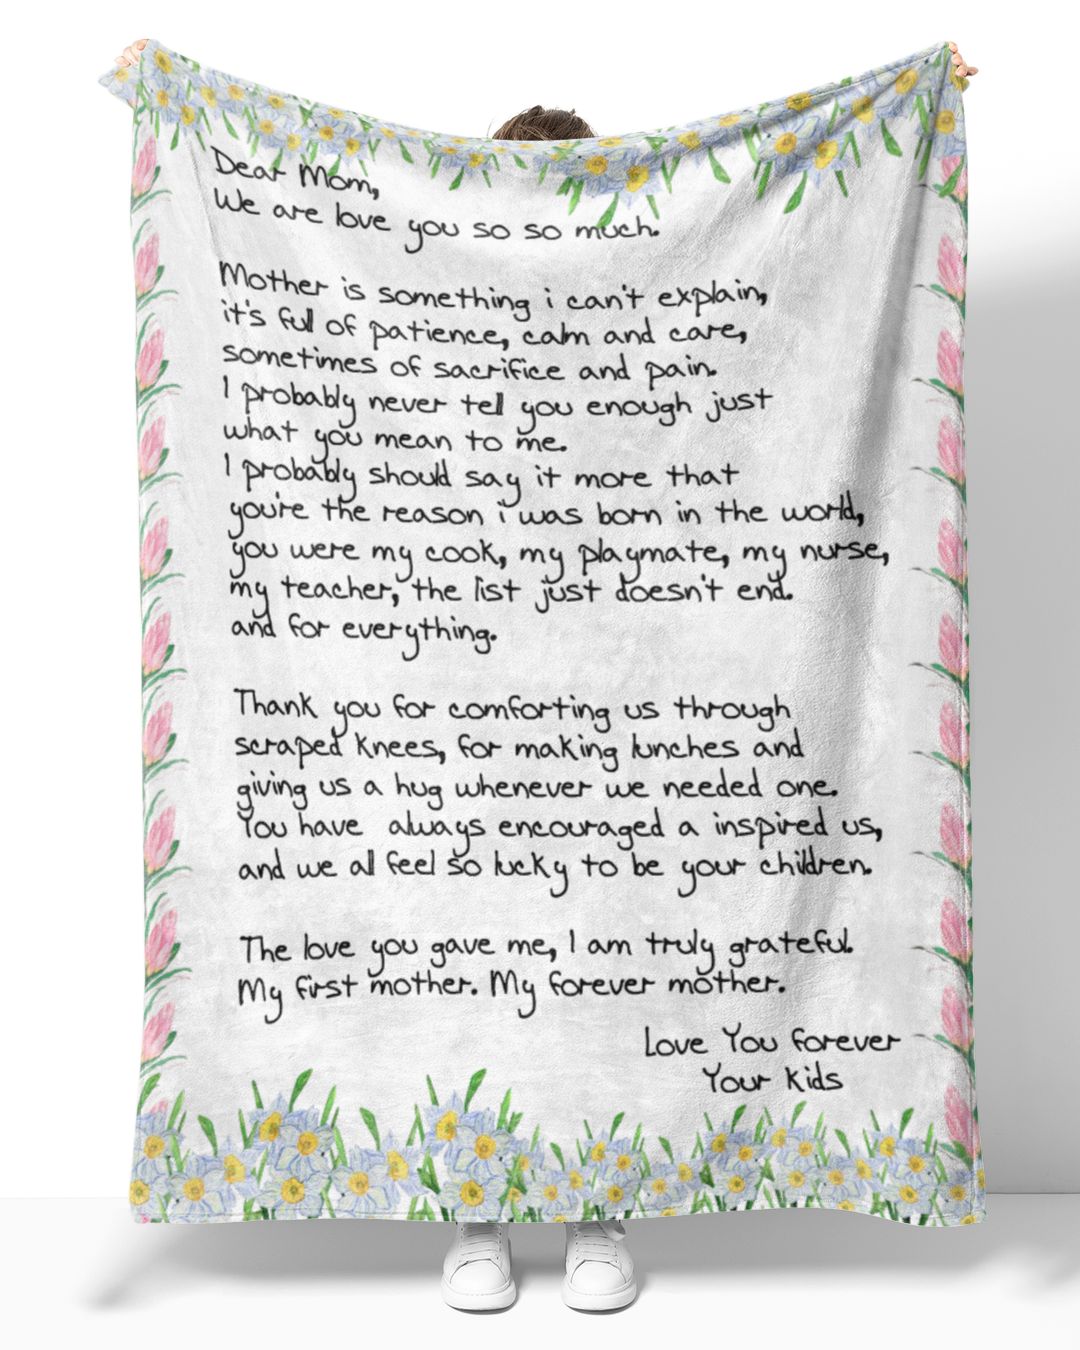 Dear Mom,
We are love you so so much.
Mother is something i can't explain,
it's full of patience, calm and care,
sometimes of sacrifice and pain.
I probably never tell you enough just
what you mean to me.
I probably should say it more that
you're the reason i was born in the world,
you were my cook, my playmate, my nurse,
my teacher, the list just doesn't end.
and for everything.
Thank you for comforting us through
scraped knees, for making lunches and
giving us a hug whenever we needed one.
You have always encouraged a inspired us,
and we all feel so lucky to be your children.
The love you gave me, I am truly grateful.
My first mother. My forever mother.
Love You Forever
Your Kids